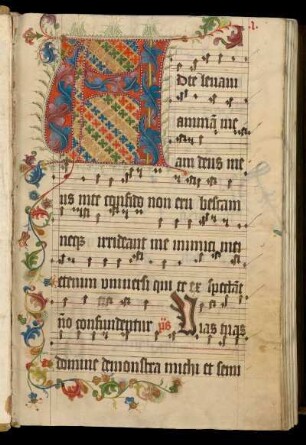 .1.
A Dte levavi
animā me
am deus me
us in te confido non erubescam
neqȝ irrideant me inimici mei
etenim universi qui te ex spectāt
nō confundentur p̄s Vias tuas
domine demonstra michi et semi